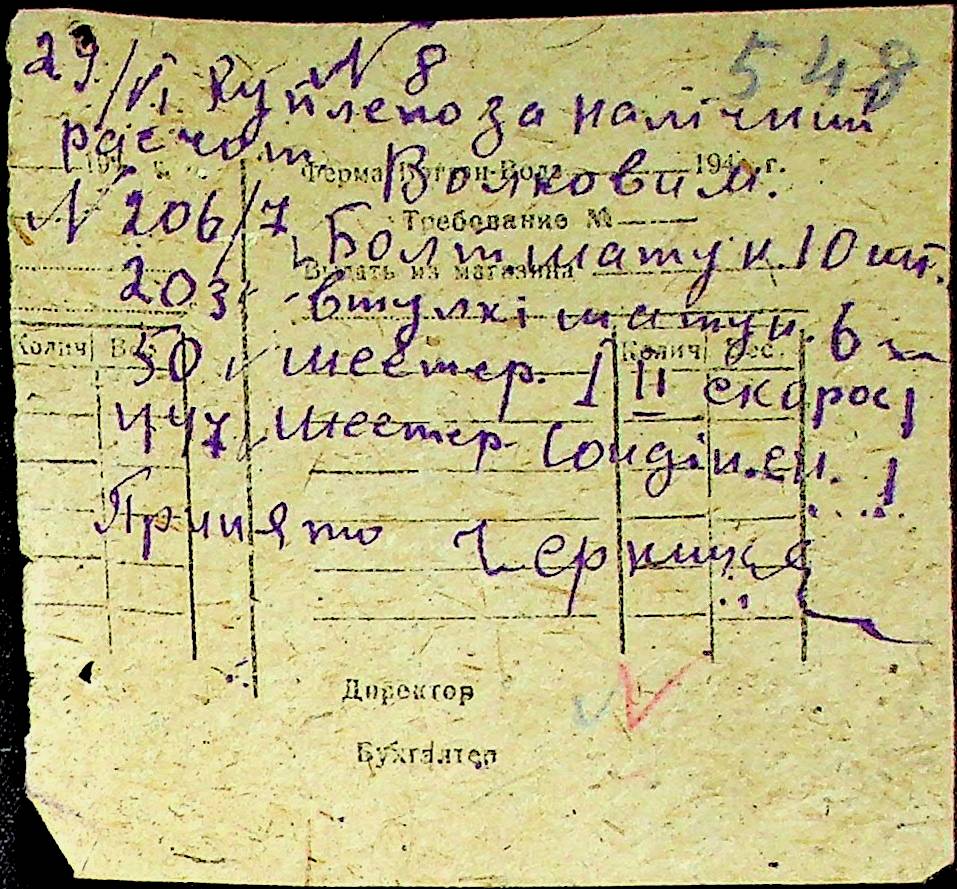 548
29/VI N 8
Куплено за налічний
расчот Волковим.
194 г. Ферма Вагон-Вода 194 г.
Требование №
N 206/7, Болт шатун. 10 шт.
Выдать из магазина
203 втулкі шатун. 6
Колич Вес Колич Вес
50, шестер. 1 II скорос 1
447, шестер 1
Принято
Директор
Бухгалтер